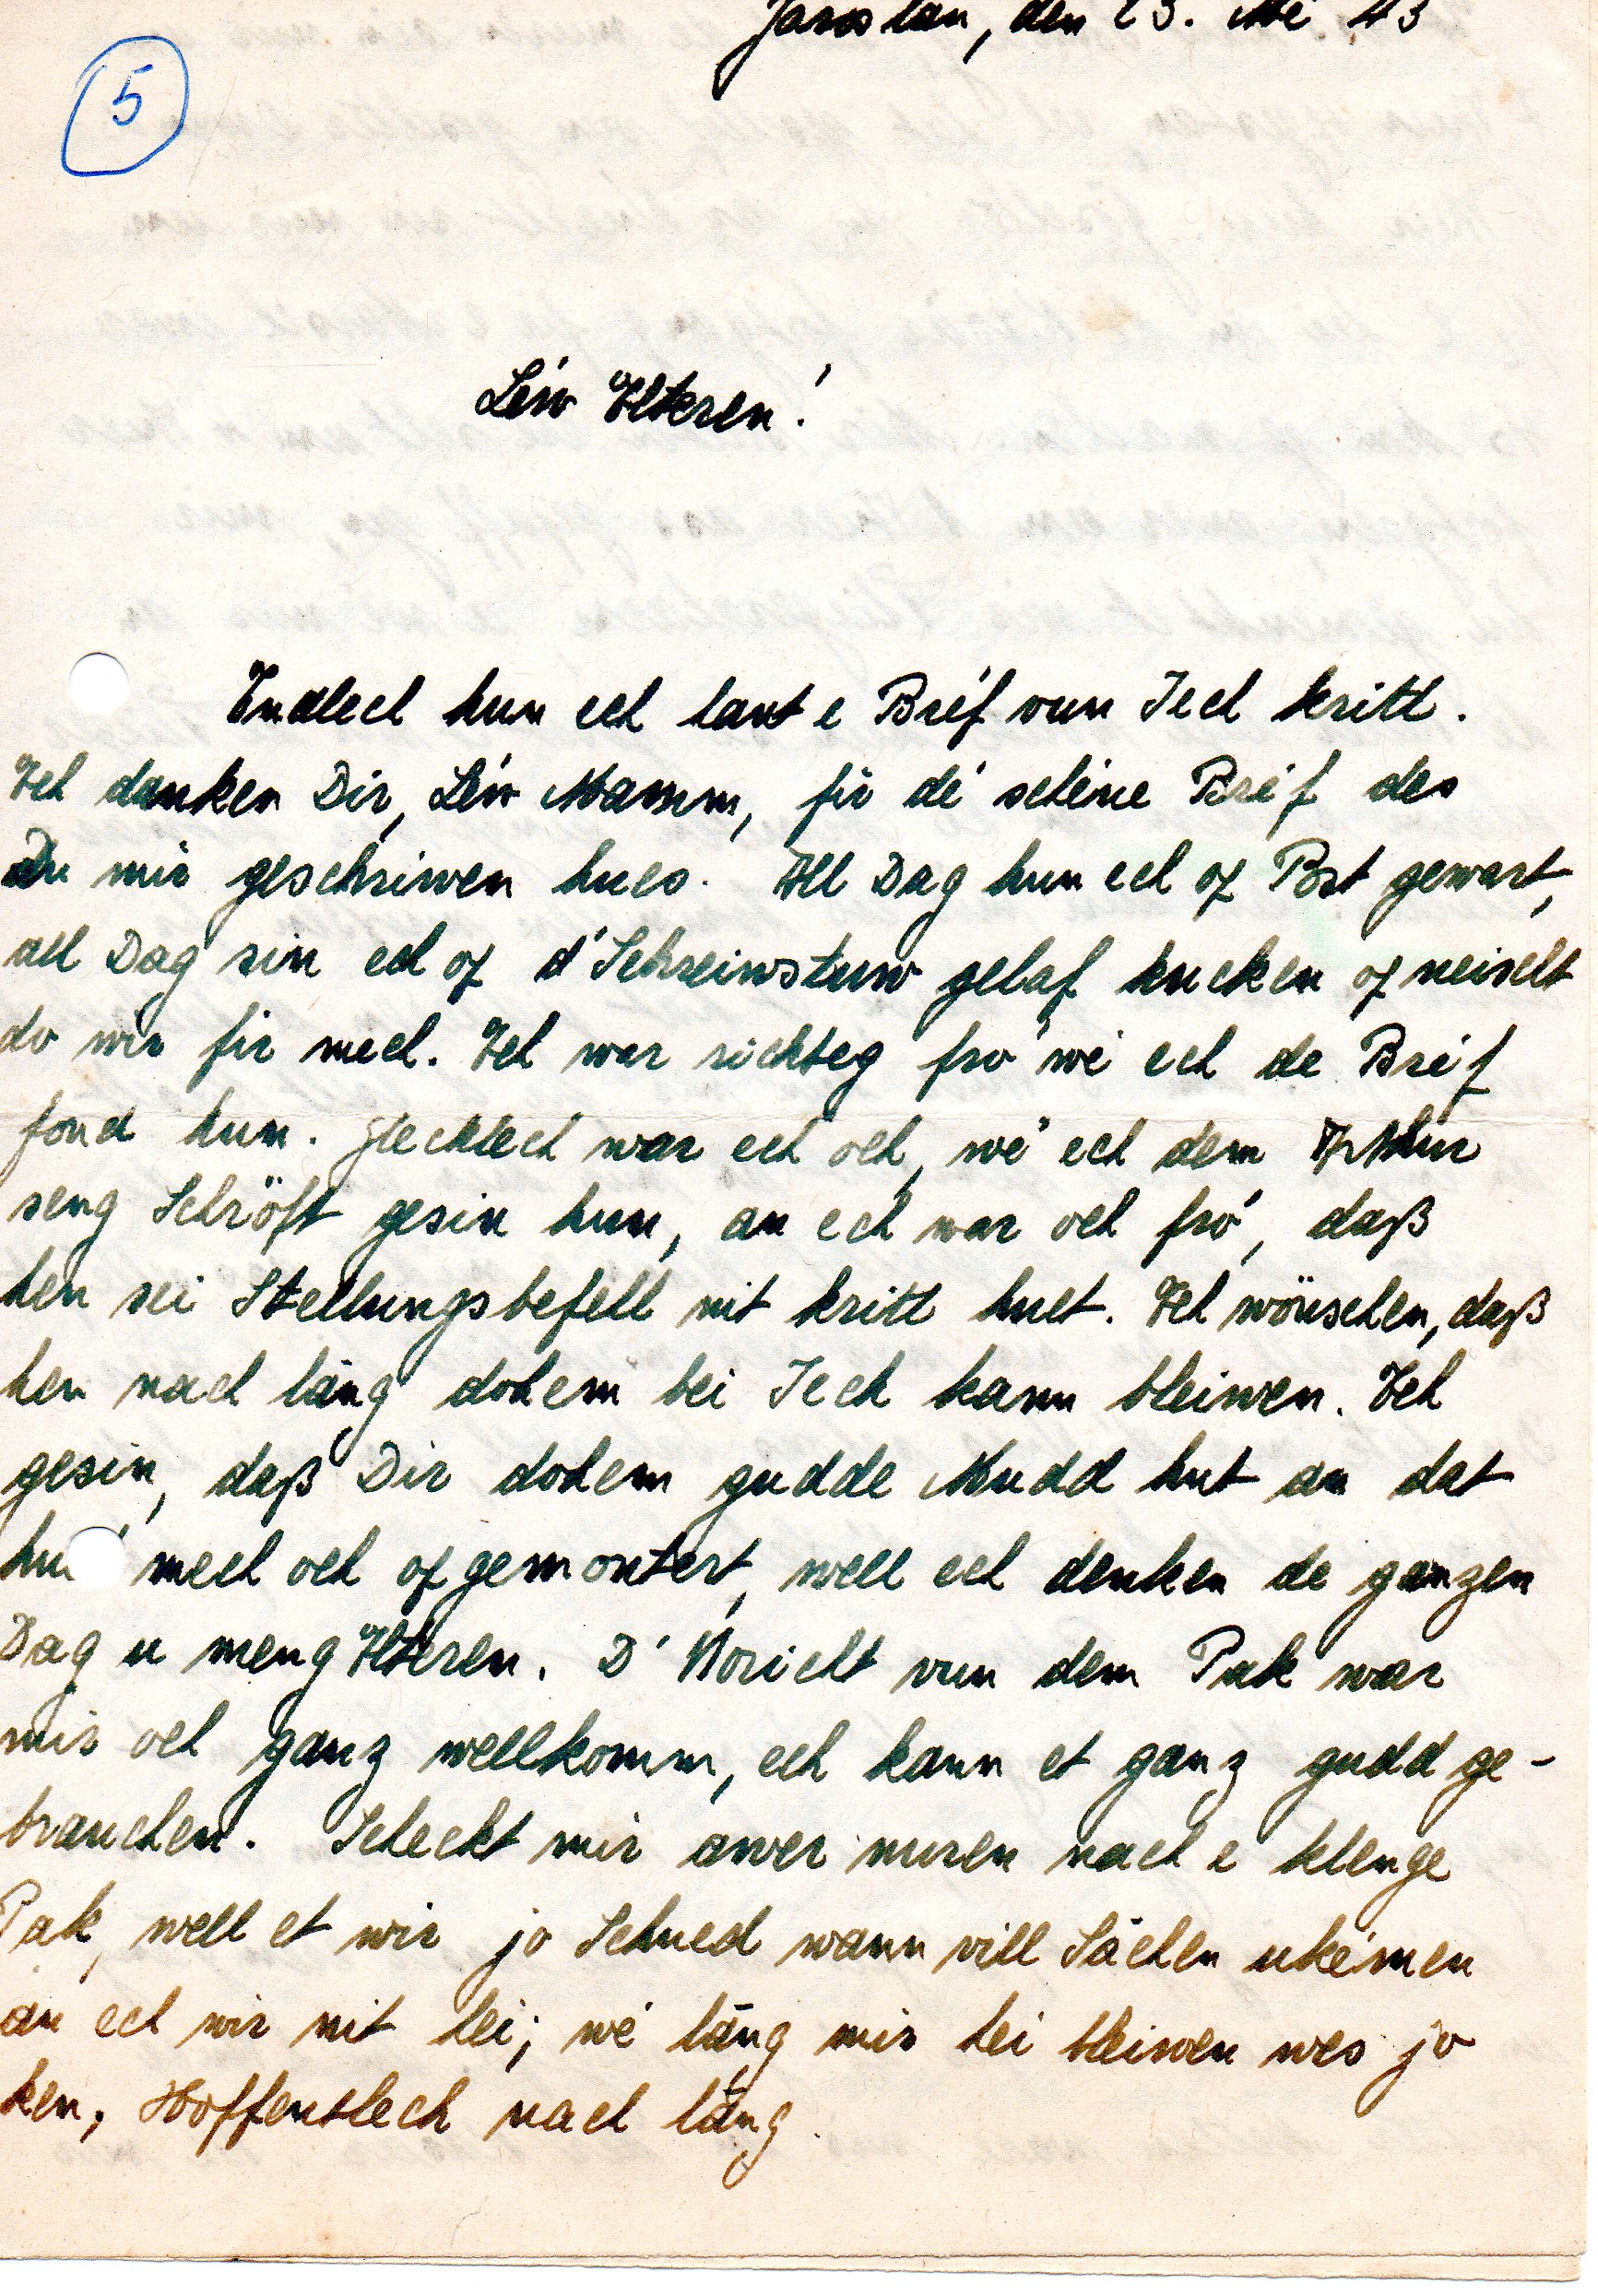 Jaroslau, den 23. Mé 43
5
Léiw Elteren!
Endlech hun ech haut e Bréf vun Iech kritt.
Ech danken Dir, Léiw Mamm, fir dé schéine Bréf des
Du mir geschriwen hues. All Dag hun ech of Post gewart,
all Dag sin ech of d'Schreiwstuw gelaf kucken of neischt
do wir fir mech. Ech war richteg fro' wé ech de Bréf
fond hun. Glecklech war ech och, wé ech dem Arthur
seng Schröft gesin hun, an ech war och fró, daß
hen sei Stellungsbefell nit kritt huet. Ech wönschen, daß
hen nach läng dohem bei Iech kann bleiwen. Ech
gesin, daß Dir dohem gudde Mudd hut an dat
hu mech och ofgemontert, well ech denken de ganzen
Dag u meng Elteren. D'Noricht vun dem Pak war
mir och ganz wellkomm, ech kann et ganz gudd ge-
brauchen. Scheckt mir awer nuren nach e klenge
Pak, well et wir jo Schued wann vill Sächen ukémen
an ech wir nit hei; wé läng mir hei bleiwen wes jo
ken, Hoffentlech nach läng.